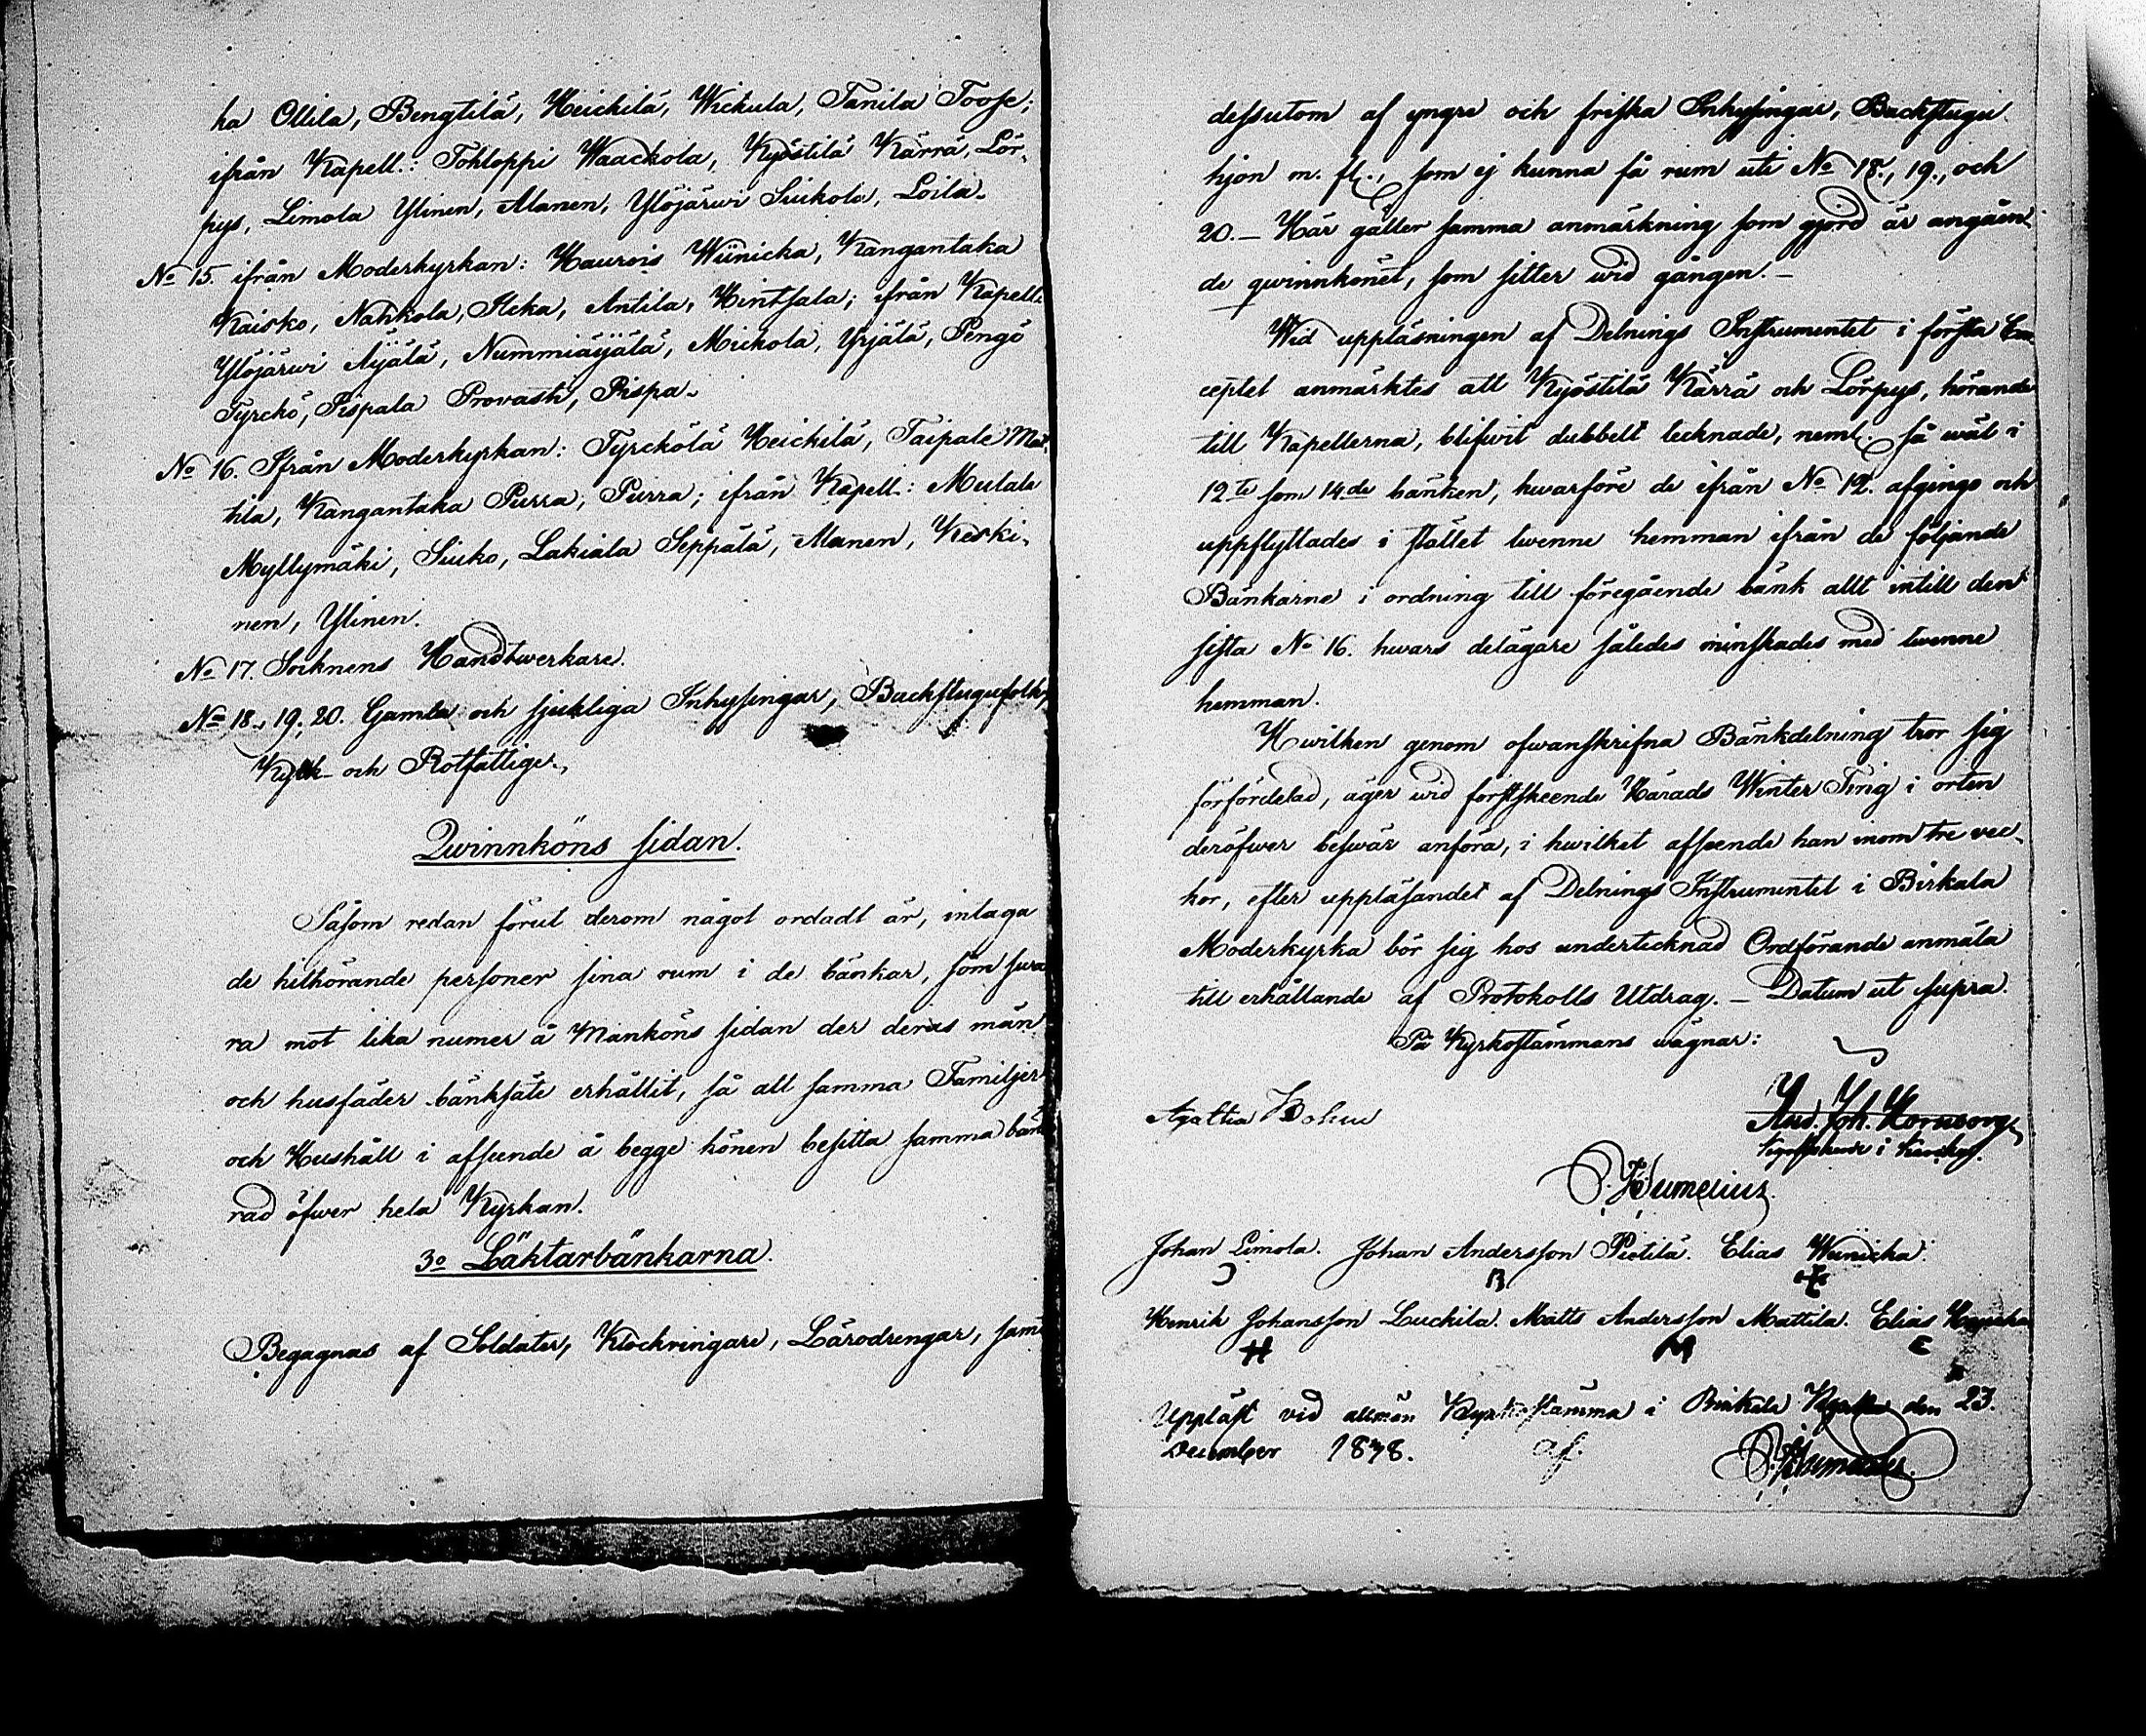 ka Ollila, Bengtilä, Heickilä, Wickula, Tanila Toose;
ifrån Kapell.: Tohloppi Waackola, Kyöstilä Kärrä, Lör-
pys, Limola Ylinen, Alanen, Ylöjärwi Siukola, Loila.
No 15. ifrån Moderkyrkan: Haurois Wiinicka, Kangantaka
Kaisko, Nahkola, Ilcka, Antila, Hintsala; ifrån Kapell.
Ylöjärwi Äijälä, Nummiäijälä, Mickola, Yrjälä, Pengö
Tyrckö, Pispala Provasti, Pispa.
No 16. Ifrån Moderkyrkan: Tyrckölä Heickilä, Taipale Mat-
tila, Kangantaka Purra, Purra; ifrån Kapell.: Mutala
Myllymäki, Siuko, Lakiala Seppälä, Alanen, Keski-
nen, Ylinen.
No 17. Socknens Handtwerkare.
No 18., 19., 20. Gamla och sjukliga Inhysingar, Backstugufolk,
och Rotfattige.
Qwinnköns sidan.
Såsom redan förut derom något ordadt är, intaga
de hithörande personer sina rum i de bänkar, som swa
ra mot lika numer å Manköns sidan der deras män
och husfäder bänksäte erhållit, så att samma Familjer
och Hushåll i afseende å begge könen besitta samma bänk
rad öfwer hela Kyrkan.
3o Läktarbänkarna.
Begagnas af Soldater, Klockringare, Lärodrengar, samt
dessutom af yngre och friska Inhysingar, Backstugu
hjon m. fl., som ej kunna få rum uti No 18., 19., och
20. — Här gäller samma anmärkning som gjord är angåen-
de qwinnkönet, som sitter wid gången. —
Wid uppläsningen af Delnings Instrumentet i första Con-
ceptet anmärktes att Kyöstilä Kärrä och Lörpys, hörande
till Kapellerna, blifwit dubbelt tecknade, neml. så wäl i
12te som 14de bänken, hwarföre de ifrån No 12. afgingo och
uppflyttades i stället twenne hemman ifrån de följande
Bänkarne i ordning till föregående bänk allt intill den
sista No 16. hwars delägare således minskades med twenne
hemman.
Hwilken genom ofwanskrifna Bänkdelning tror sig
förfördelad, äger wid förstskeende Härads Winter Ting i orten
deröfwer beswär anföra, i hwilket afseende han inom tre vec-
kor, efter uppläsandet af Delnings Instrumentet i Birkala
Moderkyrka bör sig hos undertecknad Ordförande anmäla
till erhållande af Protokolls Utdrag. — Datum ut supra.
På Kyrkostämmans wägnar:
And. Joh. Hornborg
Johan Limola. Johan Andersson Pietilä. Elias Wiinicka.
Henrik Johansson Luckila. Matts Andersson Mattila. Elias
H M E
Uppläst vid allmän Kyrkostämma i Birkala Kyrka den 23.
December 1838. af.